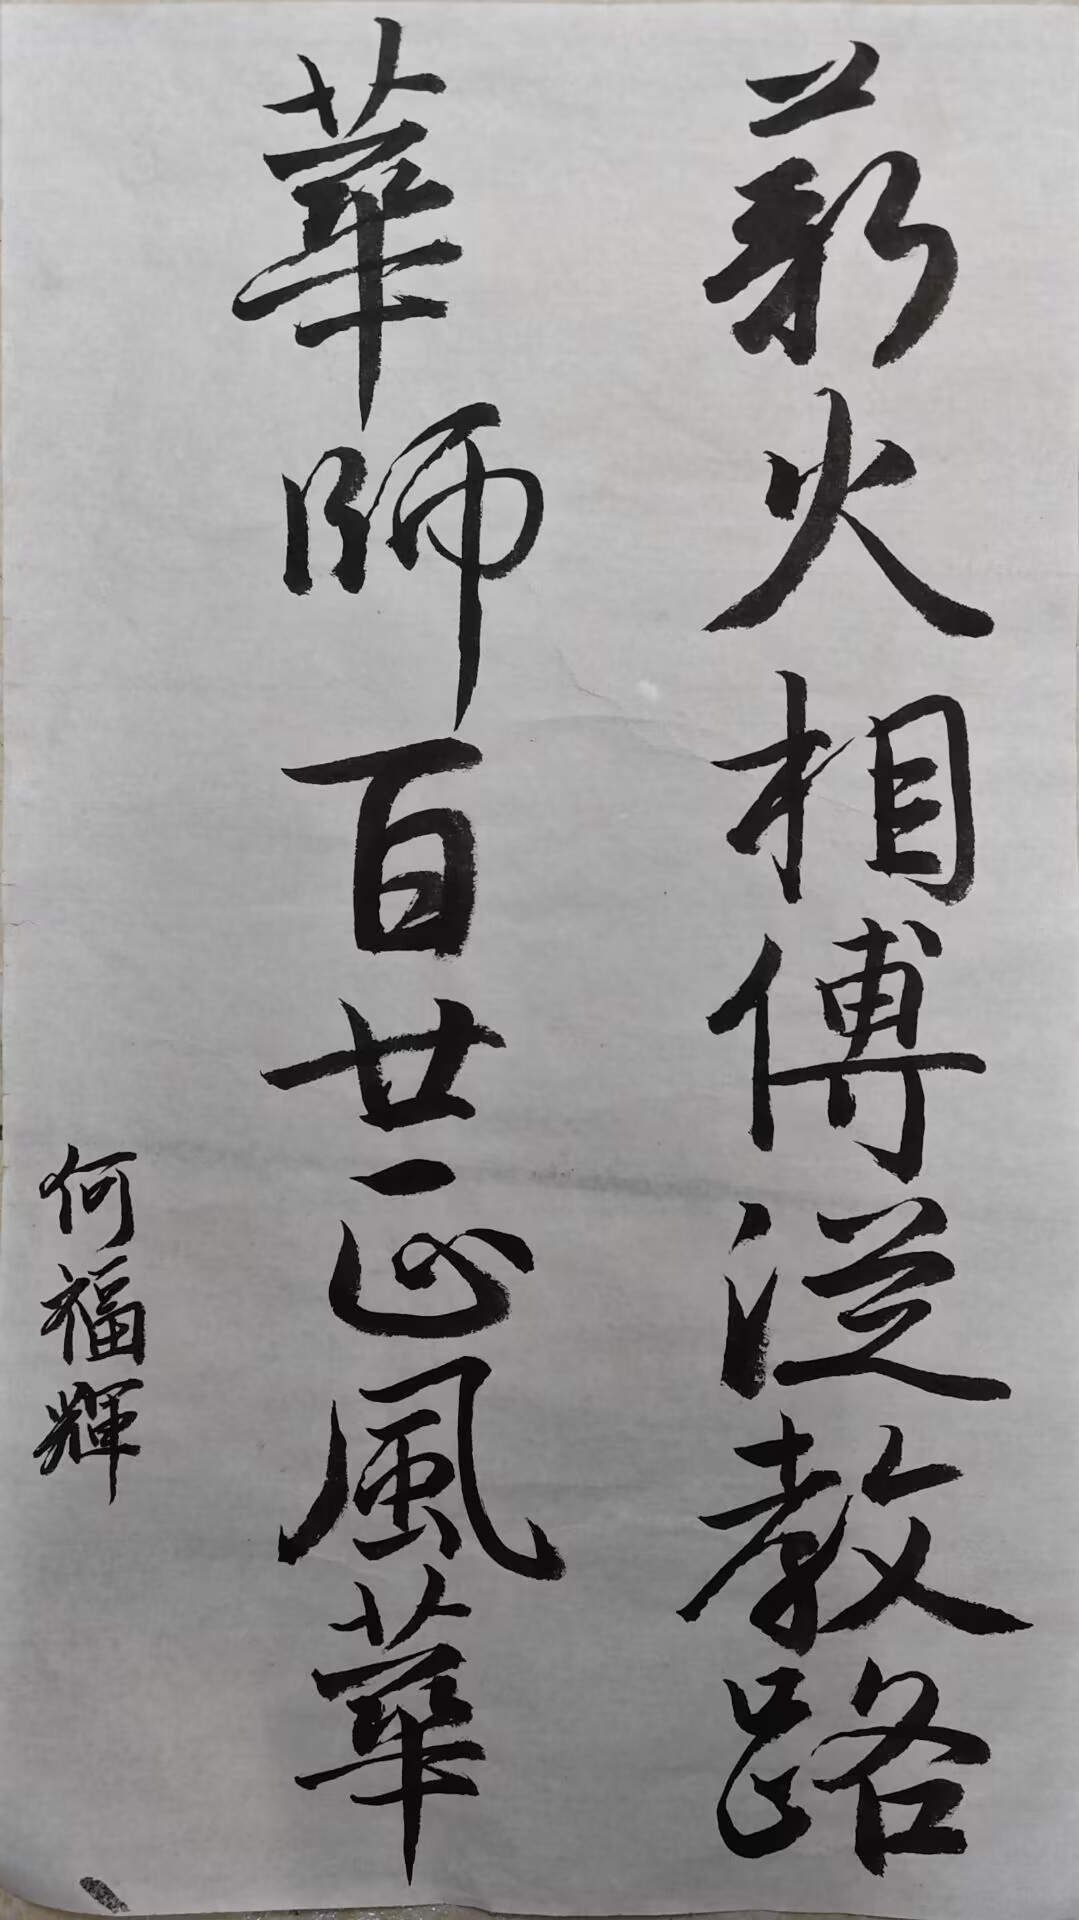 薪火相傳從教路
華師百廿正風華
何福輝